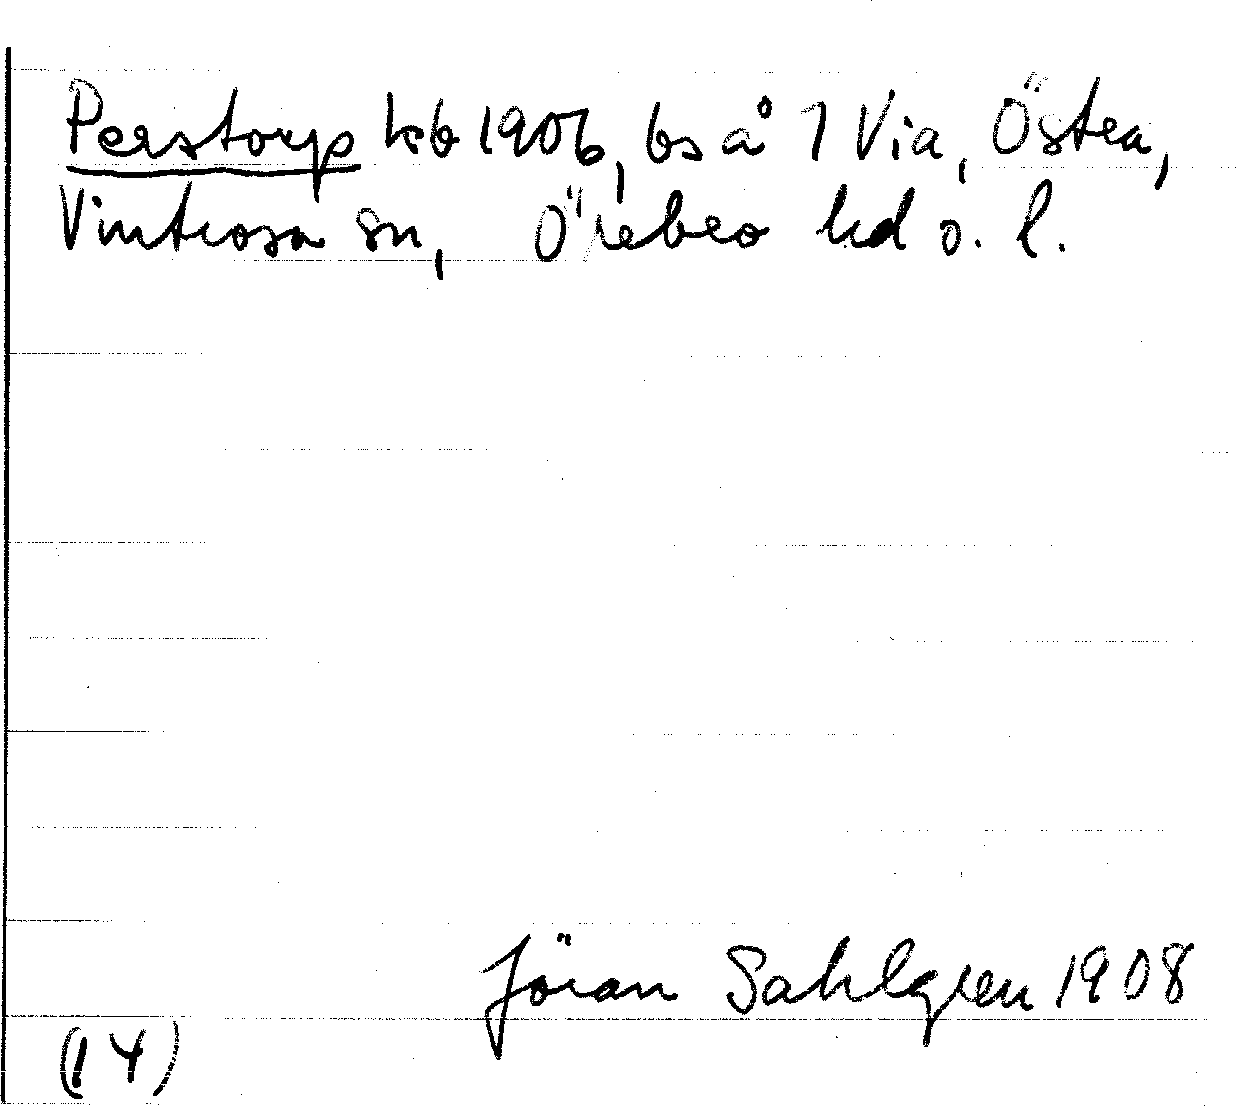 Perstorp kb 1906, bs å 1 Via, Östra,
Vintrosa sn, Örebro hd o. l.
Jöran Sahlgren 1908
(14)